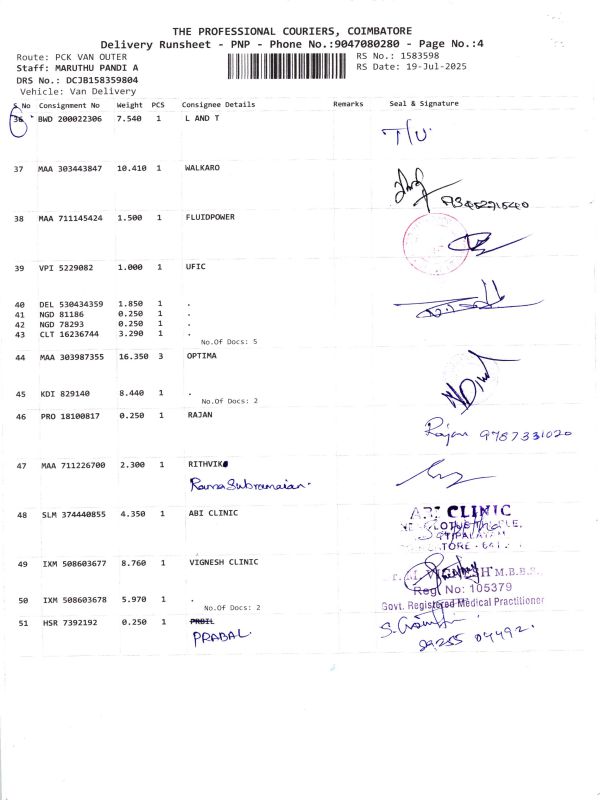 THE PROFESSIONAL COURIERS, COIMBATORE
Delivery Runsheet - PNP - Phone No.:9047080280 - Page No.:4
Route: PCK VAN OUTER RS No.: 1583598
Staff: MARUTHU PANDI A RS Date: 19-Jul-2025
DRS No.: DCJB158359804
Vehicle: Van Delivery
S No Consignment No Weight PCS Consignee Details Remarks Seal & Signature
36 BWD 200022306 7.540 1 L AND T
37 MAA 303443847 10.410 1 WALKARO
38 MAA 711145424 1.500 1 FLUIDPOWER
39 VPI 5229082 1.000 1 UFIC
40 DEL 530434359 1.850 1 .
41 NGD 81186 0.250 1 .
42 NGD 78293 0.250 1 .
43 CLT 16236744 3.290 1 .
No.Of Docs: 5
44 MAA 303987355 16.350 3 OPTIMA
45 KDI 829140 8.440 1 .
No.Of Docs: 2
46 PRO 18100817 0.250 1 RAJAN
Rajan 9787331020
47 MAA 711226700 2.300 1 RITHVIK
RamaSubramaian.
48 SLM 374440855 4.350 1 ABI CLINIC
ABI CLINIC
49 IXM 508603677 8.760 1 VIGNESH CLINIC
VIGNESH M.B.B.S.,
Regl No: 105379
50 IXM 508603678 5.970 1 .
No.Of Docs: 2
Govt. Registered Medical Practitioner
51 HSR 7392192 0.250 1 PRBIL
PRABAL.
89255 04492.